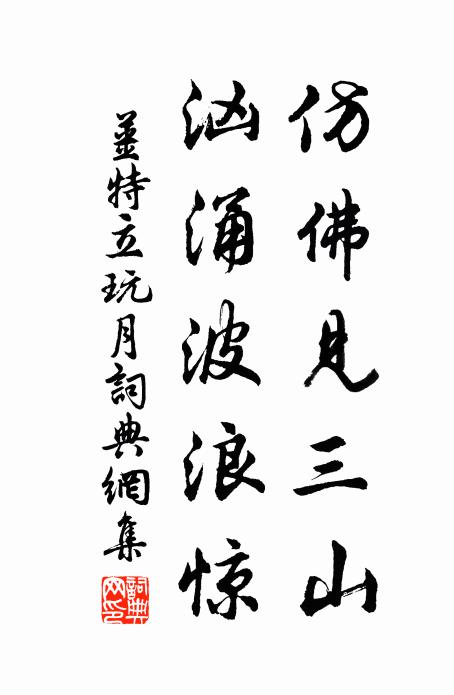 仿佛見三山
汹涌波浪惊
姜特立玩月詞典網集
詞典網印